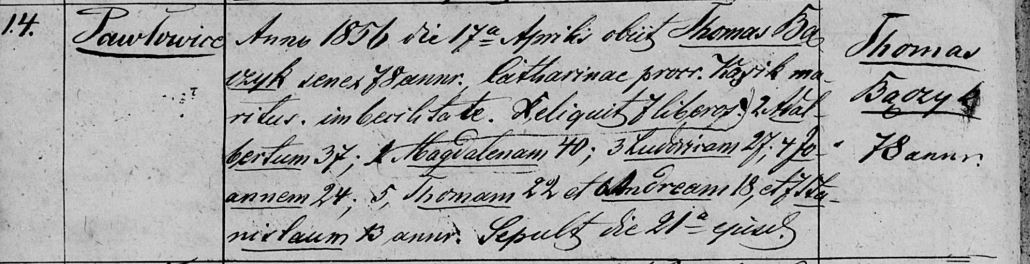 14.
Pawłowice
Anno 1856 die 17ª Aprilis obiit Thomas Bą
czyk senex 78 annr. Catharinae procr. ma-
ritus. imbecilitate. Reliquit 7 liberos: Adal-
bertum 37; 2 Magdalenam 40; 3 Ludovicam 27; 4 Jo-
annem 24; 5, Thomam 22 et Andream 18, et 7 Sta-
nislaum 13 annr. Sepult die 21ª ejusd.
Thomas
Bączyk
78 annr.